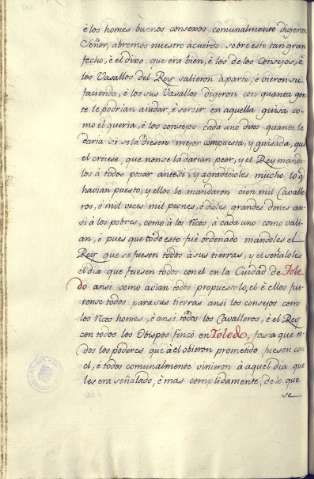 è los homes buenos consexos comunalmente digeron
Señor, abremos nuestro acuerdo sobre este tan gran
fecho, è el dixo que era bien, è los de los Consejos, è
los Vasallos del Rey salieron à parte, è vieron su
facienda, è los sus Vasallos digeron con quanta gen
te le podrian aiudar, è servir en aquella guisa co
mo el queria, è los consejos cada uno dixo quanta le
daria
el cruese, que non se la darian peor, y el Rey mandò
los à todos posar ante si y agradeçioles mucho lo q
havian puesto, y ellos le mandaron cien mil Cavalle
ros, è mil veces mil peones, è dioles grandes dones an
si à los pobres, como à los ricos, à cada uno como vali
an, è pues que todo esto fuè ordenado mandoles el
Rey que se fuesen todos à sus tierras, y el señaloles
el dia que fuesen todos con el en la Ciudad de Tole
do ansi como avian todos propuesto lo, el è ellos fue
ronse todos para sus tierras ansi los consejos como
los ricos homes, è ansi todos los Cavalleros, è el Rey
con todos los Obispos fincò en Toledo, fasta que to
dos los poderes que à el obieron prometido fuesen con
el, è todos comunalmente vinieron à aquel dia que
les era señalado, è mas complidamente, de lo que
se